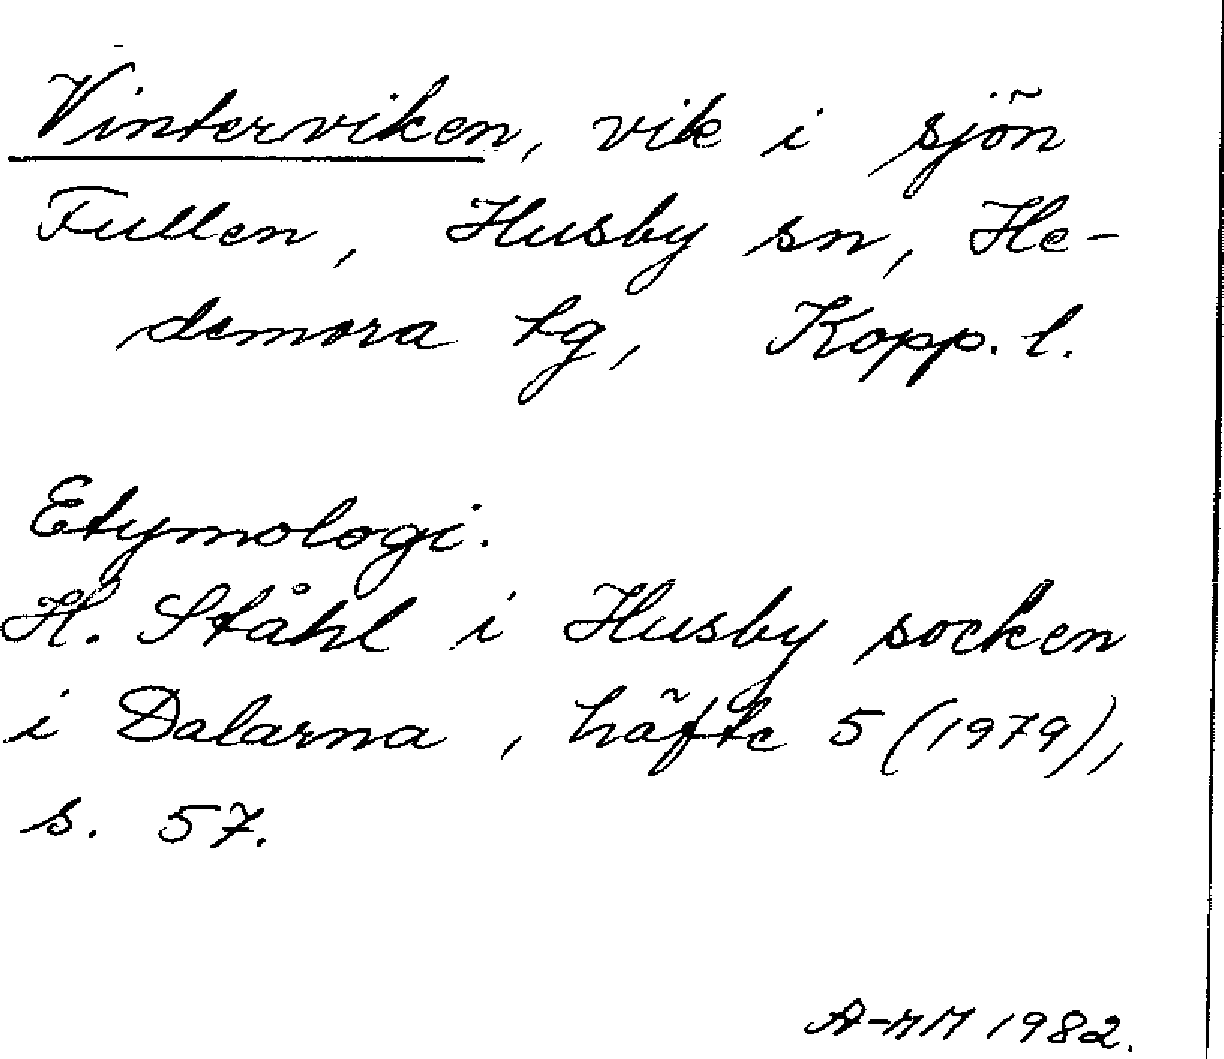 Vinterviken, vik i sjön
Fullen, Husby sn, He-
demora tg, Kopp. l.
Etymologi.
H. Ståhl i Husby socken
i Dalarna, häfte 5 (1979),
s. 57.
A-MM 1982.